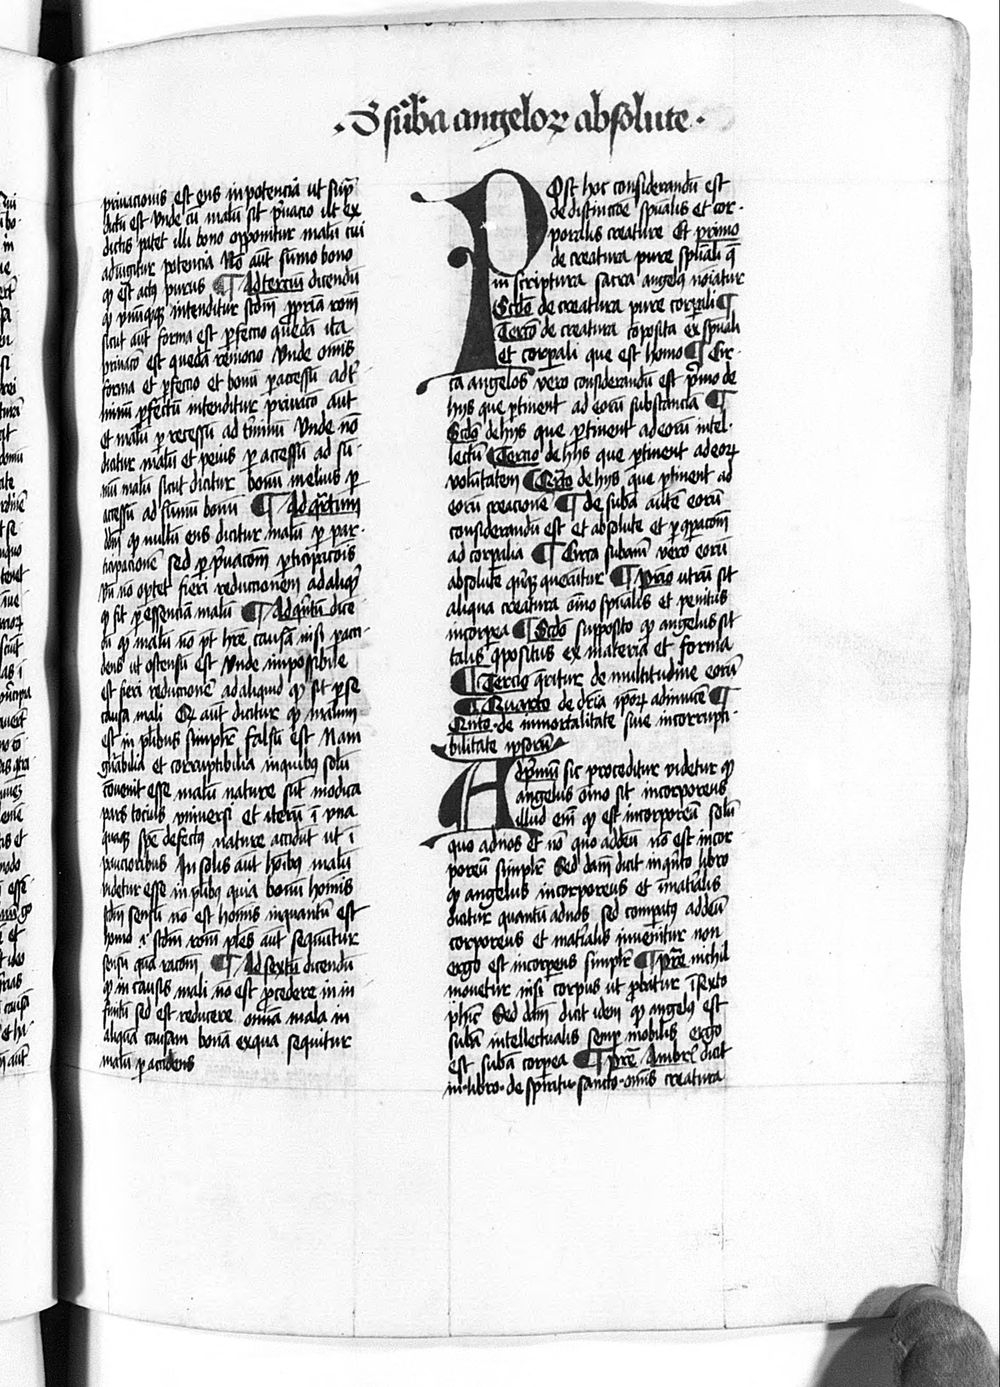 · D̄ sub̄a angeloꝝ absolute ·
privacionis est ens in potencia ut sup̄
dictū est Unde cū malū sit p̄vacio ut ex
dictis patet illi bono opponitur malū cui
adiūgitur potencia Nō aūt sūmo bono
qḋ est act9 purus ¶ Ad terciū dicendū
qḋ ūnūqḋqꝫ intenditur scḋm ꝓpriā rōm
sicut aūt forma est ꝑfectio quedā ita
privatō est quedā remocio Unde omīs
forma et ꝑfectio et bonū ꝑ accessū ad t̄
minū ꝑfectū intenditur privatō aūt
et malū ꝑ recessū ad t̄minū Unde nō
dicitur malū et peius ꝑ accessū ad sū
mū malū sicut dicitur bonū melius ꝑ
accessū ad sūmū bonū ¶ Ad qr̄tum
dōm qḋ nullū ens dicitur malū ꝑ par
ticipacionē sed ꝑ p̄vacom̄ ꝑticipacōis
Un̄ nō optet fieri reductionem ad aliqḋ
qḋ sit ꝑ essenciam malū ¶ Ad qn̄tū dice
dū qḋ malū nō pt̄ hr̄e causā nisi ꝑ acci
dens ut ostensū est Unde impossibile
est fieri reductionē ad aliquid qḋ sit ꝑ se
causa mali Qḋ aūt dicitur qḋ malum
est in pluribus simplr̄ falsū est Nam
gn̄abilia et corruptibilia in quibus solū
cōvenit esse malū nature sūt modica
pars tocius universi et iterū ī una
quaqꝫ spē defect9 nature accidit ut ī
paucioribus In solis aūt hoībus malū
videtur esse in plibꝫ quia bonū homīs
scḋm sensū nō est homīs inquantū est
homo ī scḋm rōm ples aūt sequūtur
sensū quā racōm ¶ Ad sextū dicendū
qḋ in causis mali nō est ꝓcedere in in
finitū sed est reducere omīa mala in
aliquā causam bonā ex qua sequitur
malū ꝑ accidens
POst hoc considerandū est
de distinctōe spūalis et cor
poralis creature Et primo
de creatura pure spūali q̄
in scriptura sacra angelꝯ noīatur
Scḋo de creatura pure corꝑali ¶
Tercō de creatura cōposita ex spūali
et corꝑali que est homo ¶ Cir
ca angelos vero considerandū est pͥmo de
hijs que ꝑtinent ad eorū substancia ¶
Scḋo de hijs que ꝑtinent ad eorū intel
lectū ¶ Tercio de hijs que ꝑtinent ad eoꝝ
voluntatem ¶ Qr̄to de hijs que ꝑtinent ad
eorū creacionē ¶ De sub̄a autē eorū
considerandū est et absolute et ꝑ ꝯpacōm
ad corꝑalia ¶ Circa sub̄am vero eorū
absolute qn̄qꝫ querūtur ¶ Prīo utrū sit
aliqua creatura oīno spūalis et penitus
incorꝑea ¶ Scḋo supposito qḋ angelus sit
talis ꝯpositus ex materia et forma
¶ Tercio qritur de multitudine eorū
¶ Quarto de dr̄ia ipoꝝ adinvicē ¶
Qn̄to de inmortalitate sive incorrupti
bilitate ipsorū
Ad pͥmū sic proceditur videtur qḋ
angelus oīno sit incorporeus
illud enī qḋ est incorporeū solū
quo ad nos et nō quo ad deū nō est incor
poreū simplr̄ Sed dam̄ dicit in qn̄to libro
qḋ angelus incorporeus et īmat̄ialis
dicitur quantū ad nos sed comꝑat9 ad deū
corporeus et mat̄ialis invenitur non
ergo est incorꝑeus simplr̄ ¶ Pret̄e nichil
movetur nisi corpus ut ꝓbatur ī sexto
phīc Sed dam̄ dicit idem qḋ angelꝯ est
sub̄a intellectualis semꝑ mobilis ergo
est sub̄a corꝑea ¶ Pret̄e Ambr̄ dicit
in · libro · de spiritu · sancto · omīs creatura